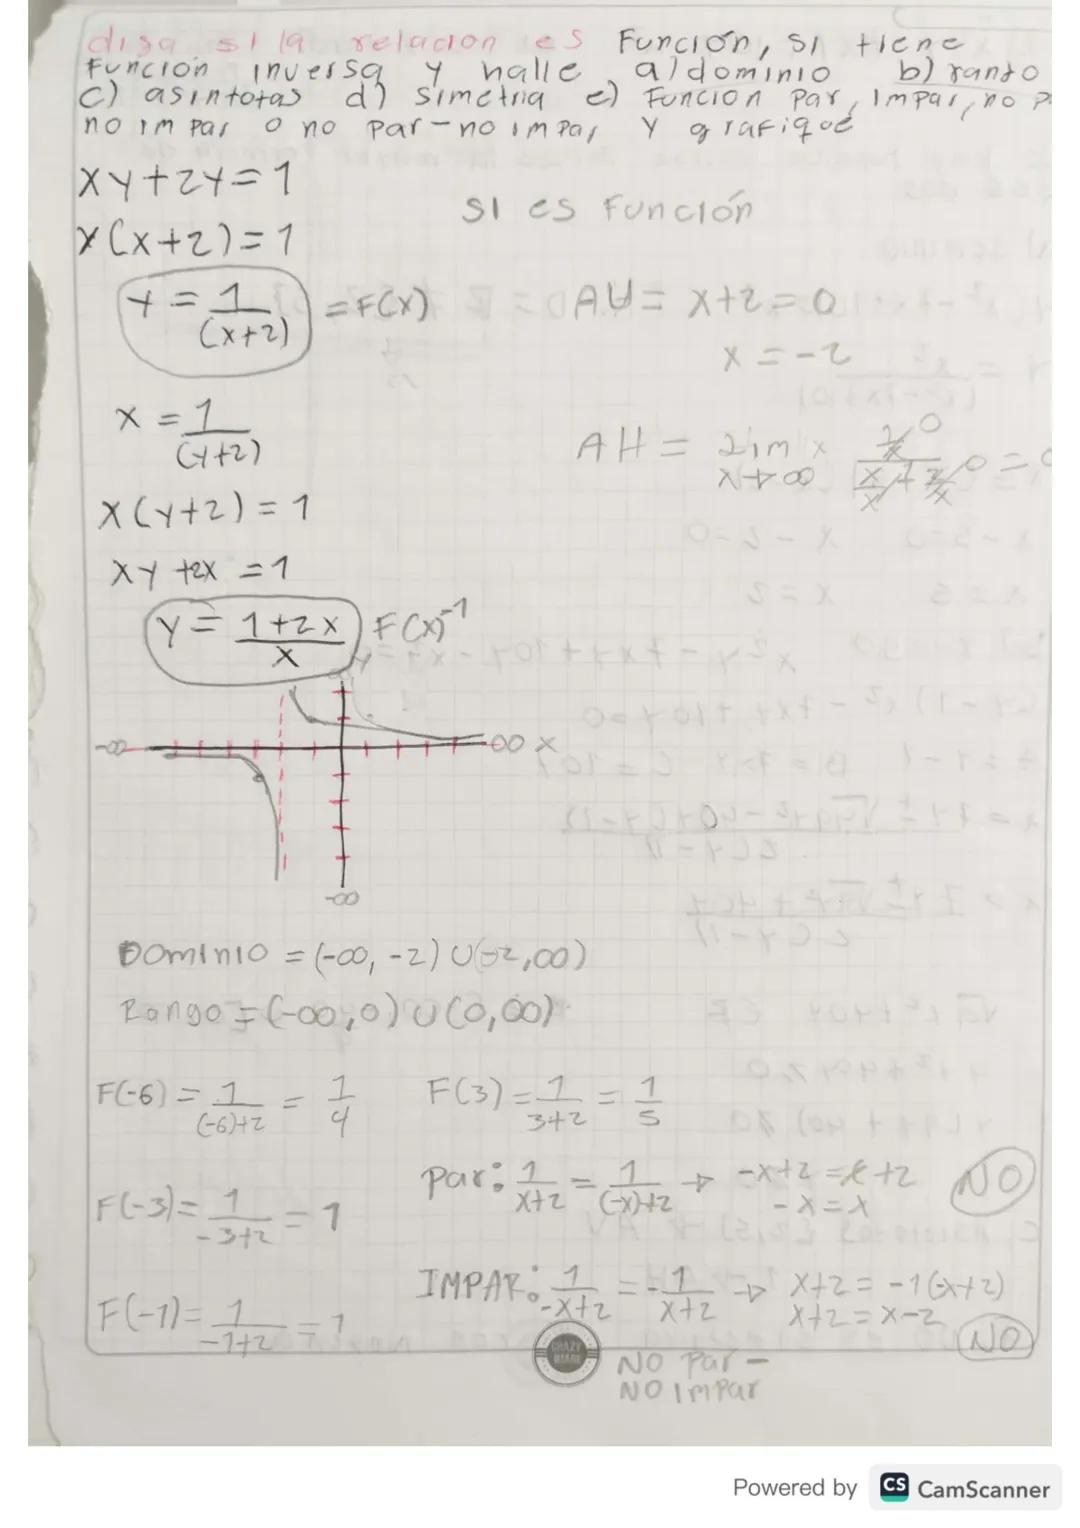 diga si la relacion es Función, si tiene
Función inversa y halle a) dominio b) rango
c) asintotas d) simetria e) Funcion Par, Impar, no P
no impar o no par-no impar y grafique
xy+2y=1
SI es Función
y(x+2)=1
y = 1/(x+2) = F(x)
AV = x+2=0
x = -2
x = 1/(y+2)
AH = lim x→∞
x(y+2) = 1
xy +2x = 1
y = 1+2x/x F(x)^-1
-∞ ∞ x
-∞
Dominio = (-∞, -2) U(-2,∞)
Rango = (-∞,0) U (0,∞)
F(-6) = 1/(-6)+2 = 1/4 F(3) = 1/3+2 = 1/5
Par: 1/x+2 = 1/(-x)+2 → -x+2 = x+2 NO
F(-3) = 1/-3+2 = 1 -x = x
IMPAR: 1/-x+2 = -1/x+2 → x+2 = -1(-x+2)
F(-1) = 1/-1+2 = 1 x+2 = x-2 NO
CRAZY
NO Par -
NO Impar
Powered by CS CamScanner